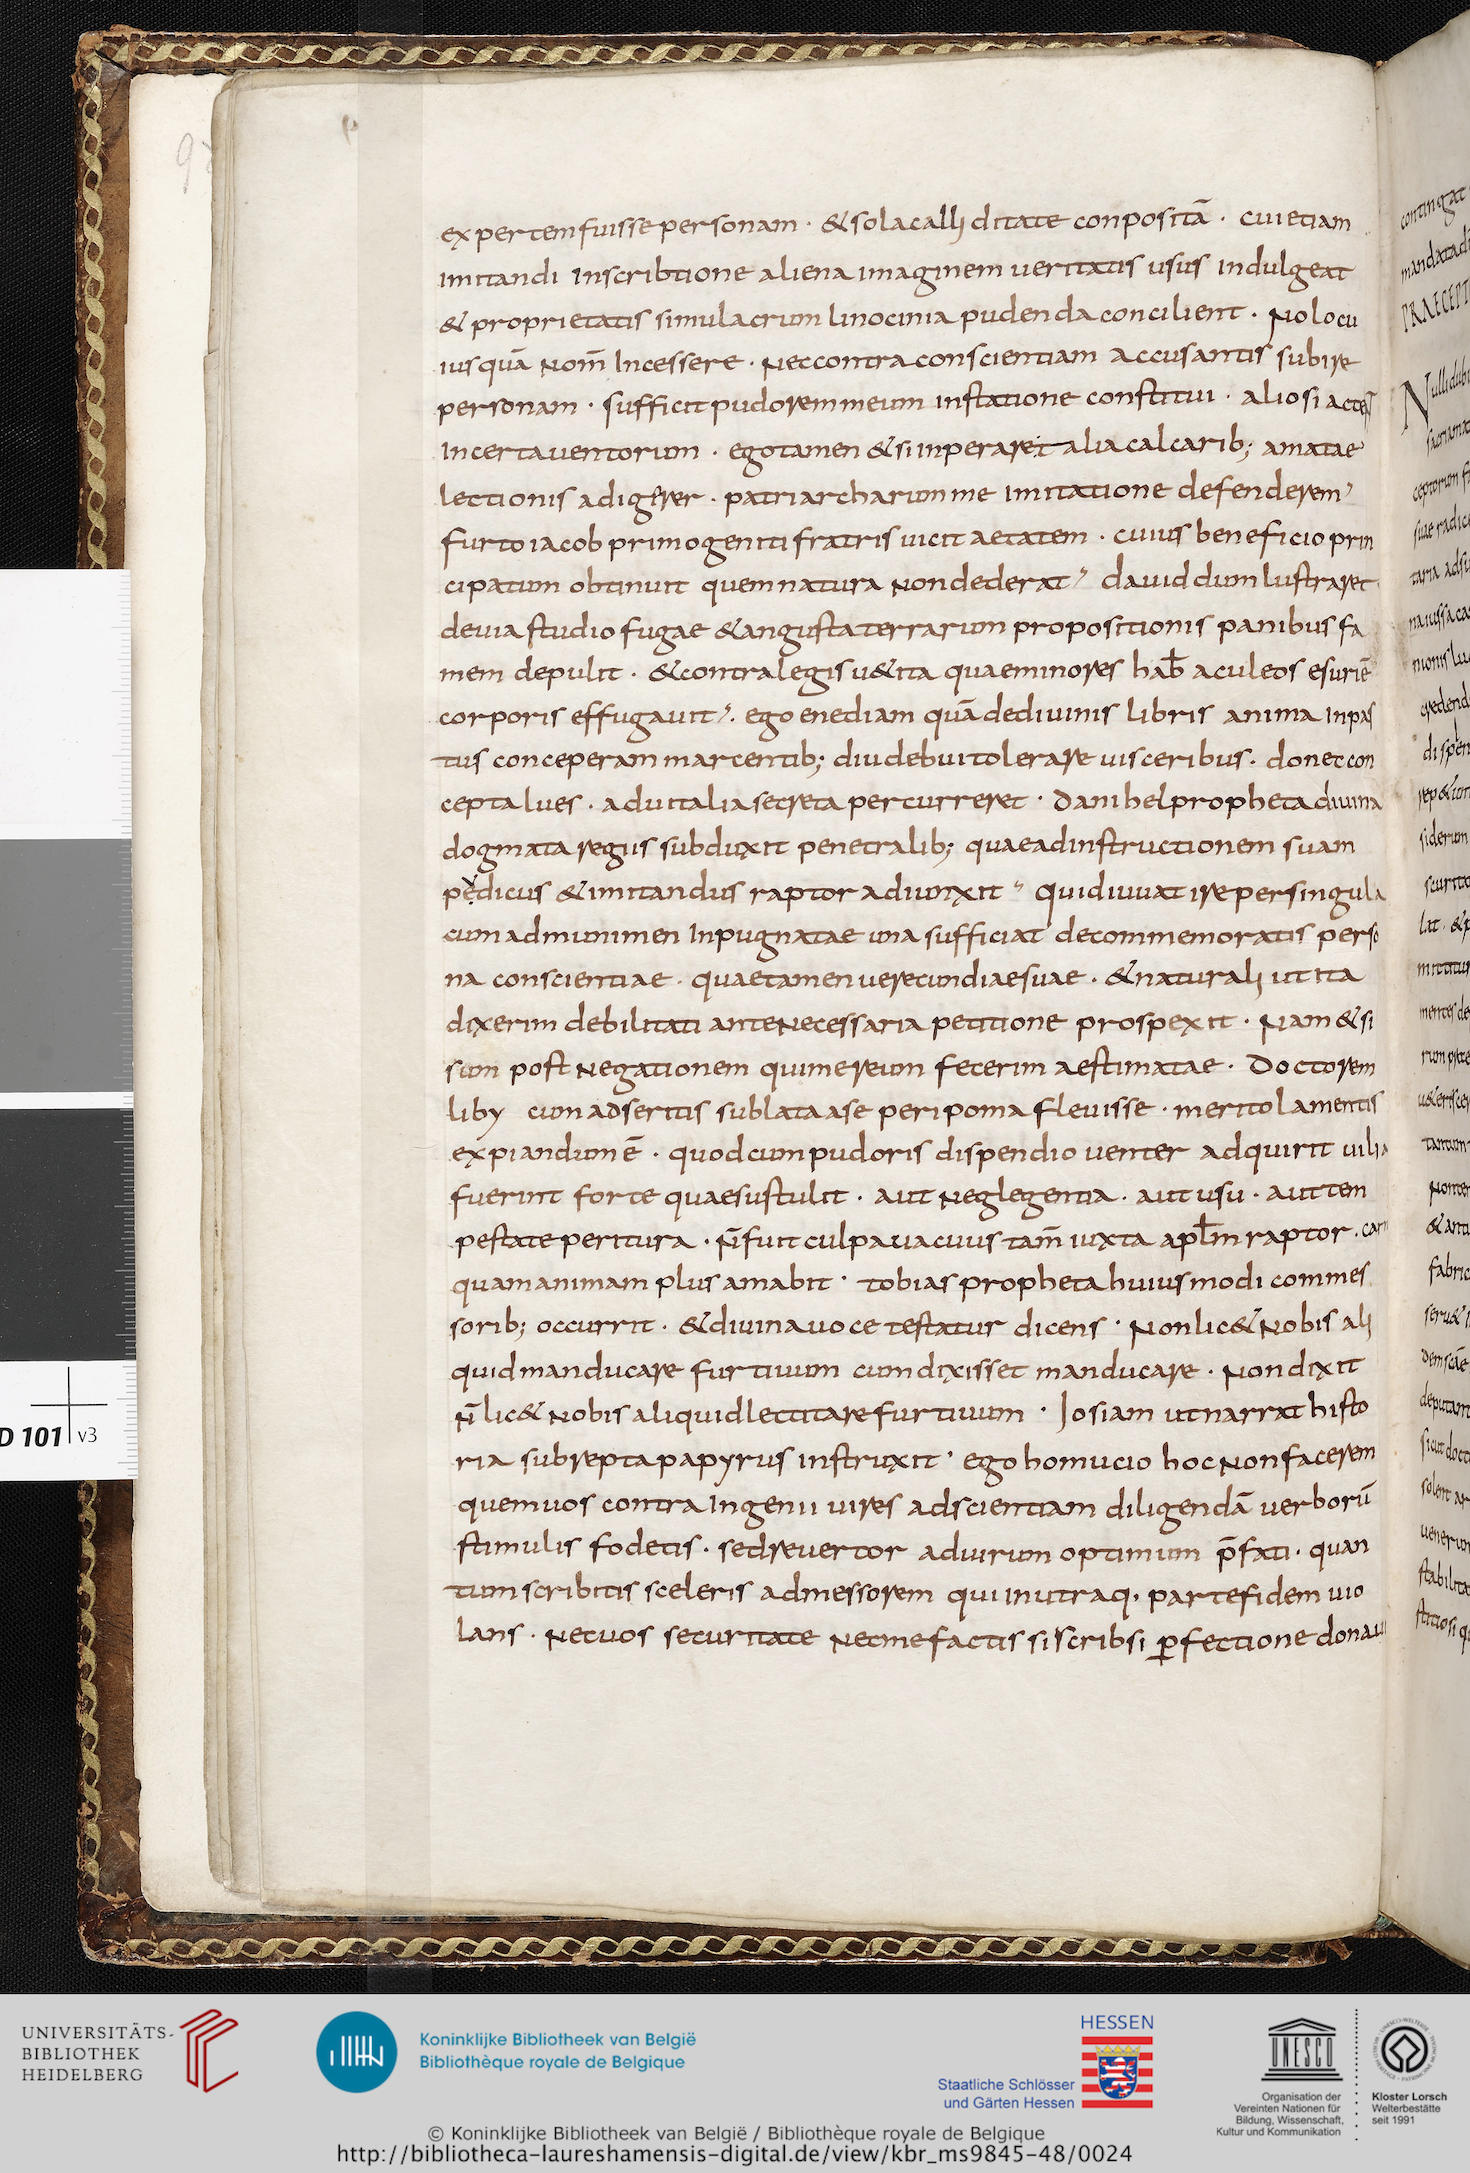 expertem fuisse personam · & sola calliditate conpositā · cui etiam
imitandi inscribtione aliena imaginem ueritatis usus indulgeat
& proprietatis simulacrum linocinia pudenda concilient · Nolo cu
iusquā nom̄ Incessere · Nec contra conscientiam accusantis subire
personam · sufficit pudorem meum in statione constitui · alios iactes
Incerta uentorum · ego tamen & si inperaret alia calcarib; amatae
lectionis adigerer · patriarcharum me imitatione defenderem
furto iacob primogeniti fratris uicit aetatem · cuius beneficio prin
cipatum obtinuit quem natura Non dederat dauid dum lustraret
deuia studio fugae & angusta terrarum propositionis panibus fa
mem depulit · & contra legis u&ita quae minores hab̄ aculeos esuriē
corporis effugauit · ego enediam quā de diuinis libris anima inpas
tus conceperam marcentib; diu debui tolerare uisceribus · donec con
cepta lues · ad uitalia secreta percurreret · Danihel propheta diuina
dogmata regiis subduxit penetralib; quae ad instructionem suam
pedicus & imitandus raptor adiunxit Quid iuuat ire per singula
cum ad munimen Inpugnatae una sufficiat de commemoratis perso
na conscientiae · quae tamen uerecundiae suae · & naturali ut ita
dixerim debilitati ante Necessaria petitione prospexit · Nam & si
sum post Negationem quimereum fecerim aestimatae · Doctorem
liby cum adseritis sublata ase peripoma fleuisse · merito lamentis
expiandum ē · quod cum pudoris dispendio uenter adquirit uilia
fuerint forte quae sustulit · aut Neglegentia · aut usu · aut tem
pestate peritura · N̄ fuit culpa uacuus tam̄ iuxta apl̄m raptor · car
quam animam plus amabit · tobias propheta huiusmodi commes
sorib; occurrit · & diuina uoce testatur dicens · Non lic& Nobis ali
quid manducare furtiuum cum dixisset manducare · Non dixit
N̄ lic& Nobis aliquid lectitare furtiuum · Josiam ut narrat histo
ria subrepta papyrus instruxit · ego homucio hoc Non facerem
quem uos contra Ingenii uires ad scientiam diligendā uerborū
stimulis fodetis · sed reuertor ad uirum optimum p̄fati · quan
tum scribitis sceleris admessorem qui in utraq, parte fidem uio
lans · Nec uos securitate Nec me factis si scribsi ꝑfectione donau
UNIVERSITÄTS-
BIBLIOTHEK
HEIDELBERG
Koninklijke Bibliotheek van België
Bibliothèque royale de Belgique
HESSEN
Staatliche Schlösser
und Gärten Hessen
UNESCO
Organisation der
Vereinten Nationen für
Bildung, Wissenschaft,
Kultur und Kommunikation
Kloster Lorsch
Welterbestätte
seit 1991
© Koninklijke Bibliotheek van België / Bibliothèque royale de Belgique
http://bibliotheca-laureshamensis-digital.de/view/kbr_ms9845-48/0024
D 101 v3